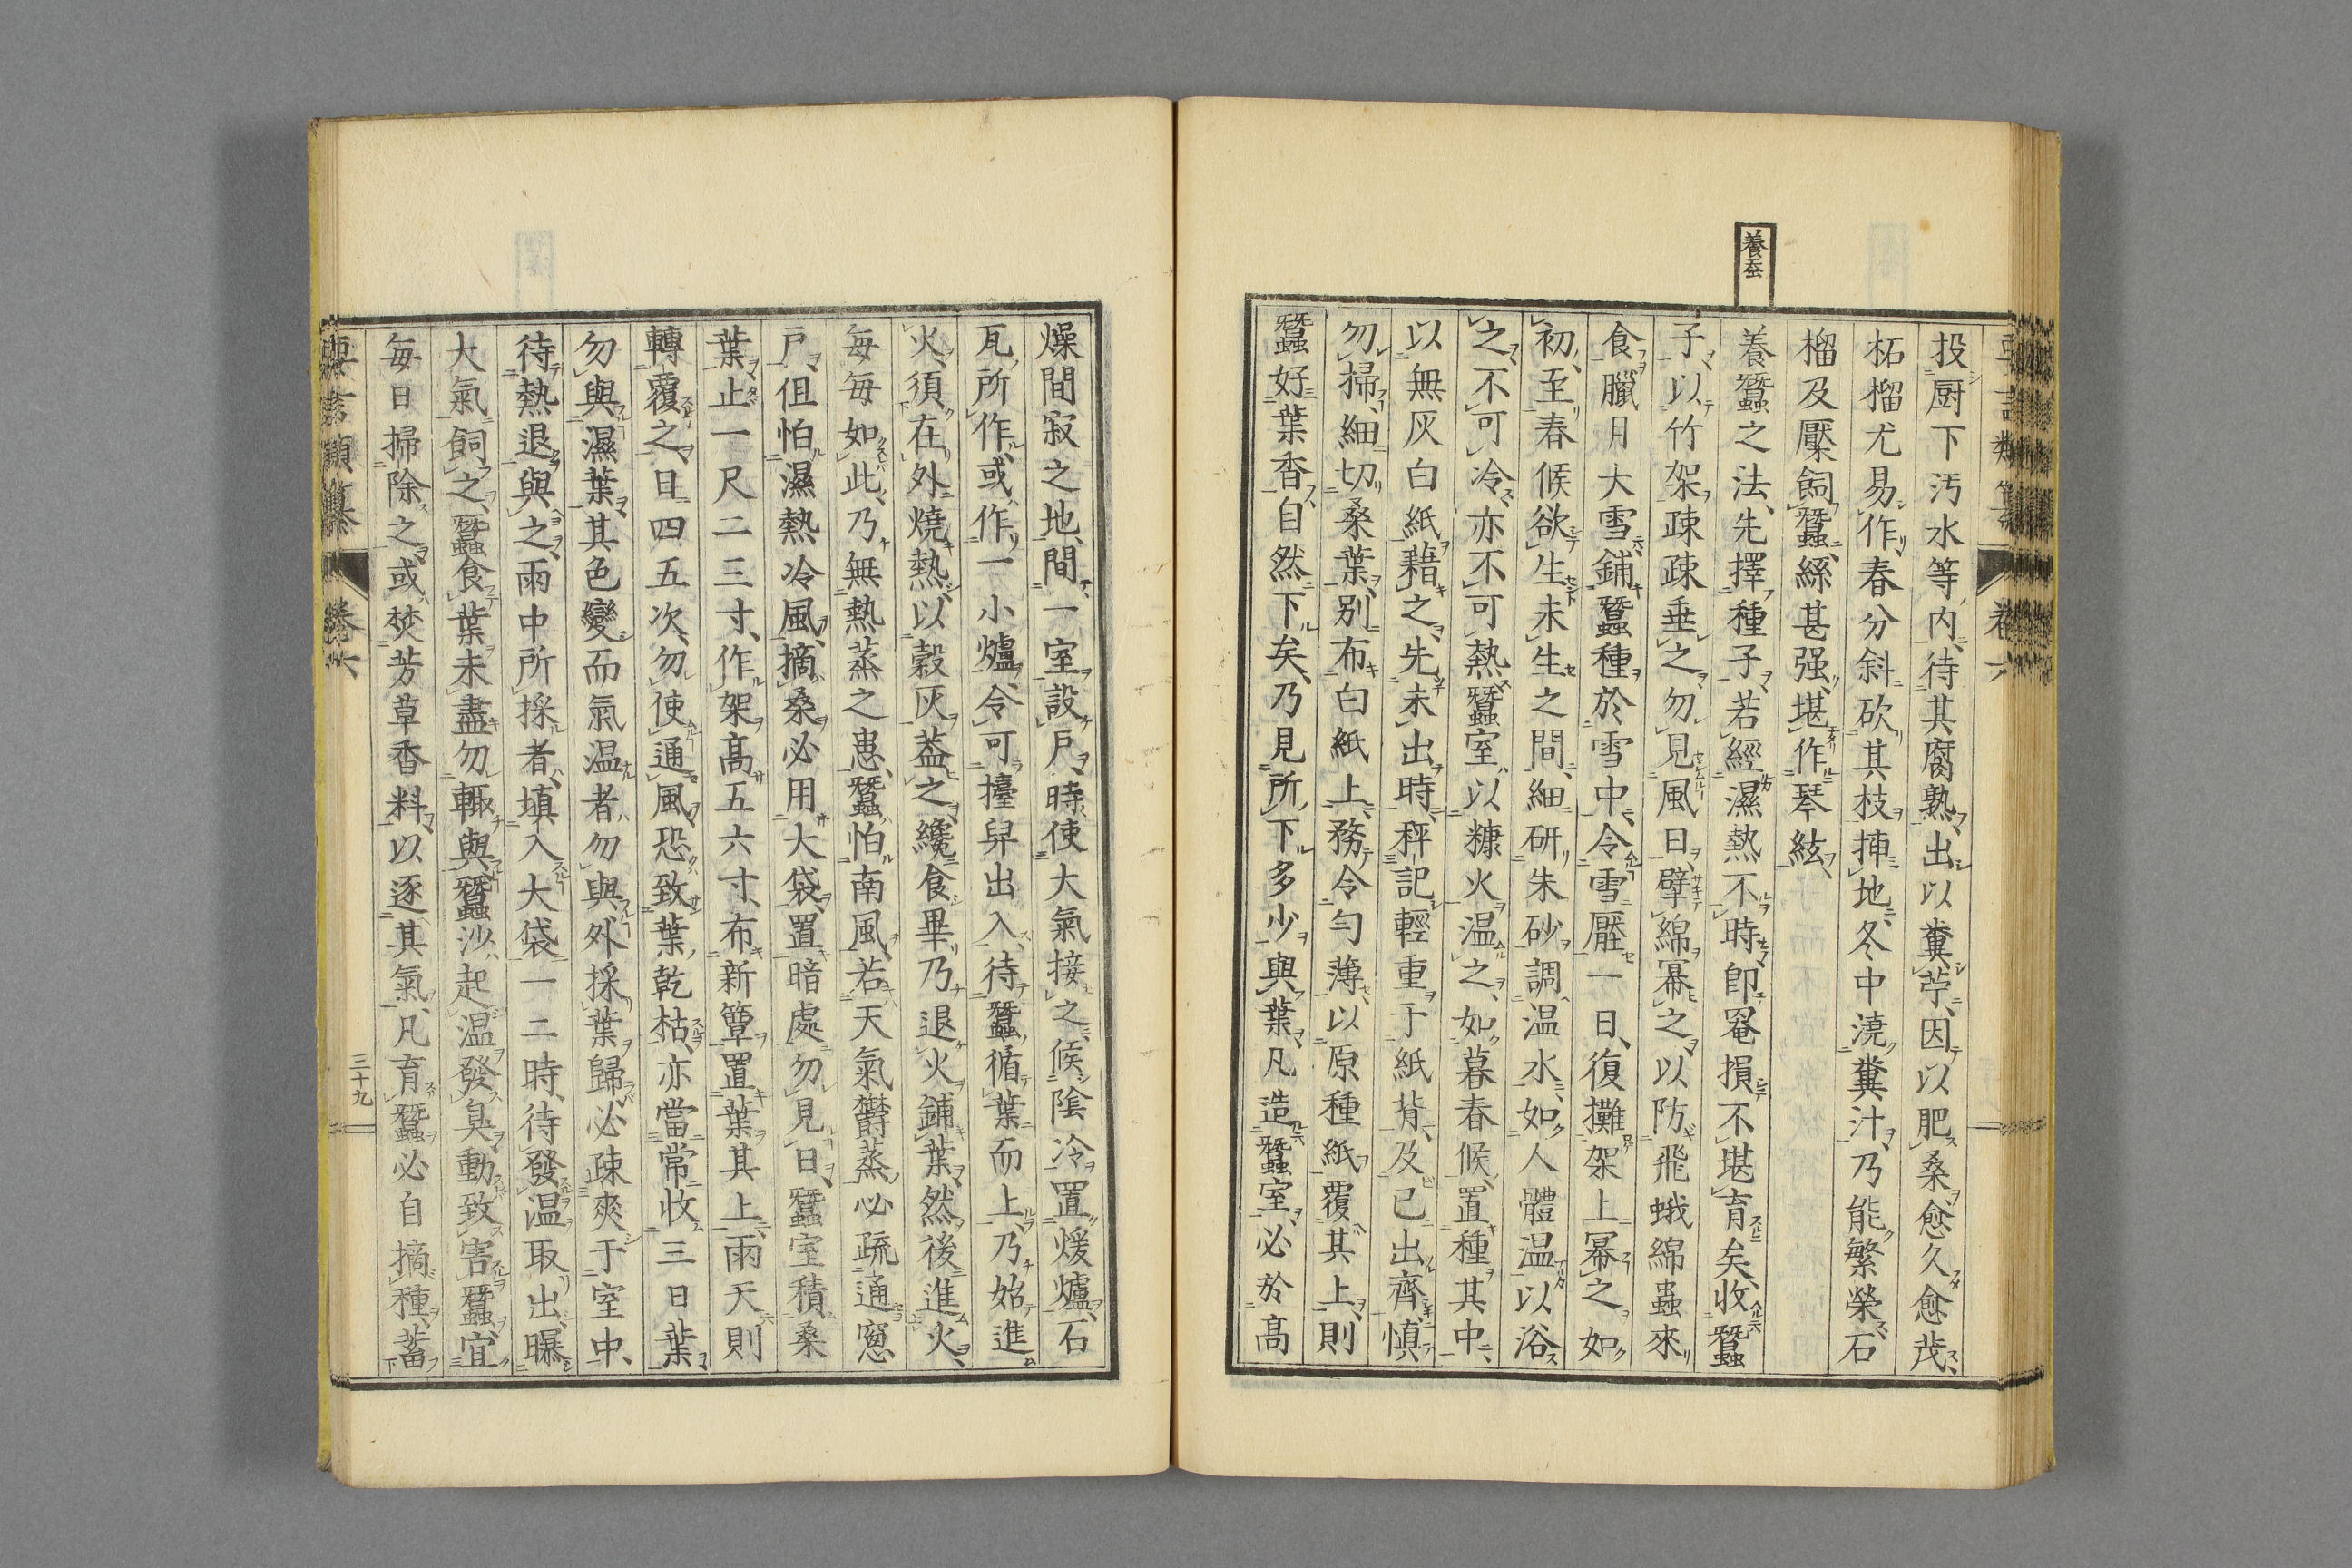 養蚕
投厨下汚水等内待其腐熟出以糞苧因以肥桑愈久愈茂
柘榴尤易作春分斜砍其枝挿地冬中澆糞汁乃能繁榮石
榴及檿飼蠶絲甚强堪作琴絃
養蠶之法先擇種子若經濕熱不時卽罨損不堪育矣收蠶
子以竹架疎疎垂之勿見風日擘綿冪之以防飛蛾綿蟲來
食臘月大雪鋪蠶種於雪中令雪壓一日復攤架上冪之如
初至春候欲生未生之間細研朱砂調温水如人體温以浴
之不可冷亦不可熱蠶室以糠火温之如暮春候置種其中
以無灰白紙藉之先未出時秤記輕重于紙背及已出齊愼
勿掃細切桑葉別布白紙上務令勻薄以原種紙覆其上則
蠶好葉香自然下矣乃見所下多少與葉凡造蠶室必於高
燥間寂之地間一室設戶時使大氣接之候陰冷置煖爐石
瓦所作或作一小爐令可擡舁出入待蠶循葉而上乃始進
火須在外燒熱以穀灰蓋之纔食畢乃退火鋪葉然後進火
每每如此乃無熱蒸之患蠶怕南風若天氣欝蒸必疏通窻
戶但怕濕熱冷風摘桑必用大袋置暗處勿見日蠶室積桑
葉止一尺二三寸作架高五六寸布新簟置葉其上雨天則
轉覆之日四五次勿使通風恐致葉乾枯亦當常收三日葉
勿與濕葉其色變而氣温者勿與外採葉歸必疎爽于室中
待熱退與之雨中所採者塡入大袋一二時待發温取出曝
大氣飼之蠶食葉未盡勿輙與蠶沙起温發臭動致害蠶宜
每日掃除之或焚芳草香料以逐其氣凡育蠶必自摘種蓄
卷六
三十九